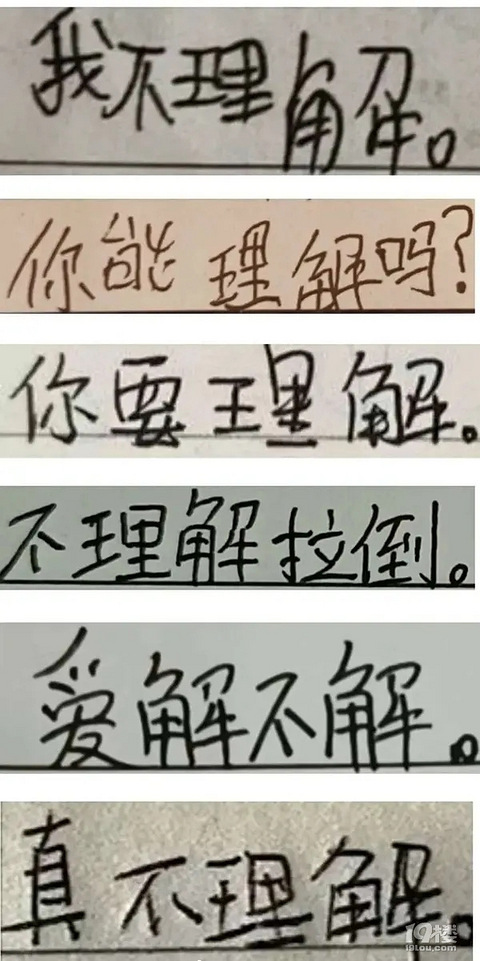 我不理解。
你能理解吗?
你要理解。
不理解拉倒。
爱解不解。
真不理解.
19楼
19lou.com